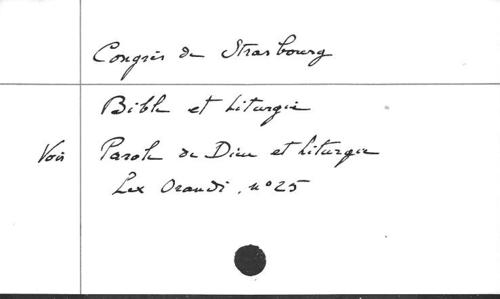 Congrès de Strasbourg
Bible et Liturgie
Voir Parole de Dieu et Liturgie
Lex Orandi, n° 25